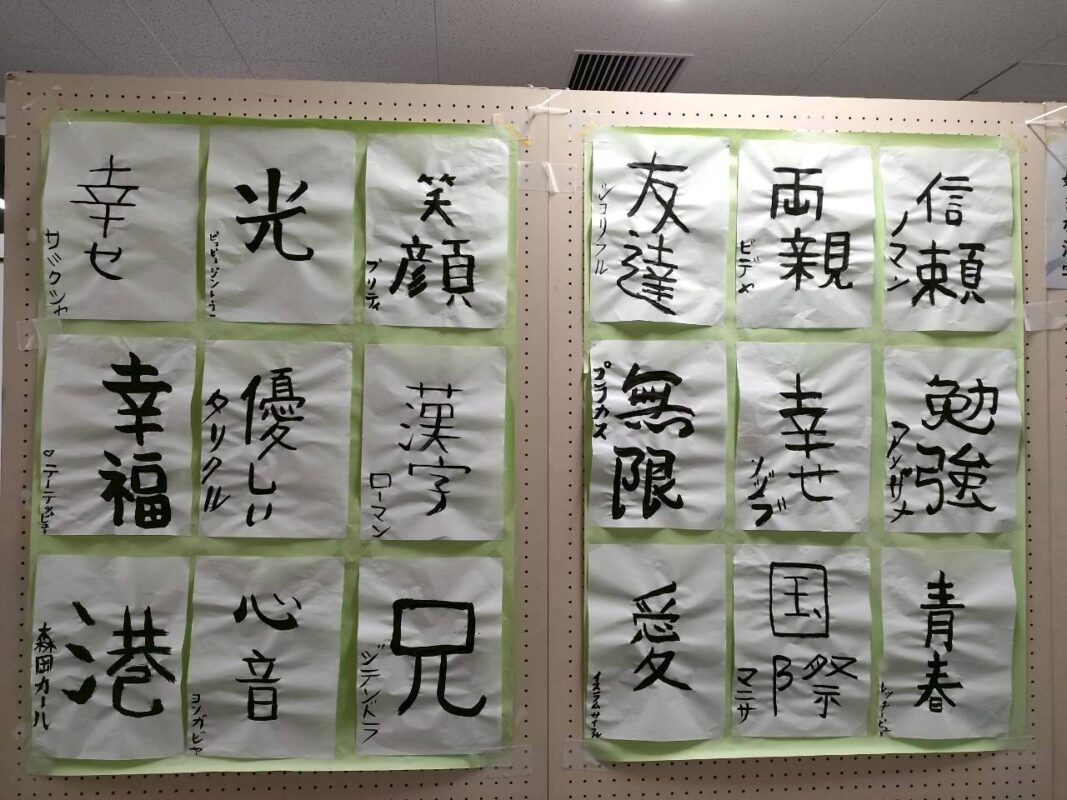 幸せ
サバクシャ
光
笑顔
プリティ
幸福
優しい
タリクル
漢字
ローマン
港
森岡カール
心音
ヨンガビャ
兄
ジテンドラ
友達
ショリフル
両親
ビデャ
信頼
ノマン
無限
プラカス
幸せ
ソゾブ
勉強
アッザメ
愛
イスラムサイフル
国際
マニサ
青春